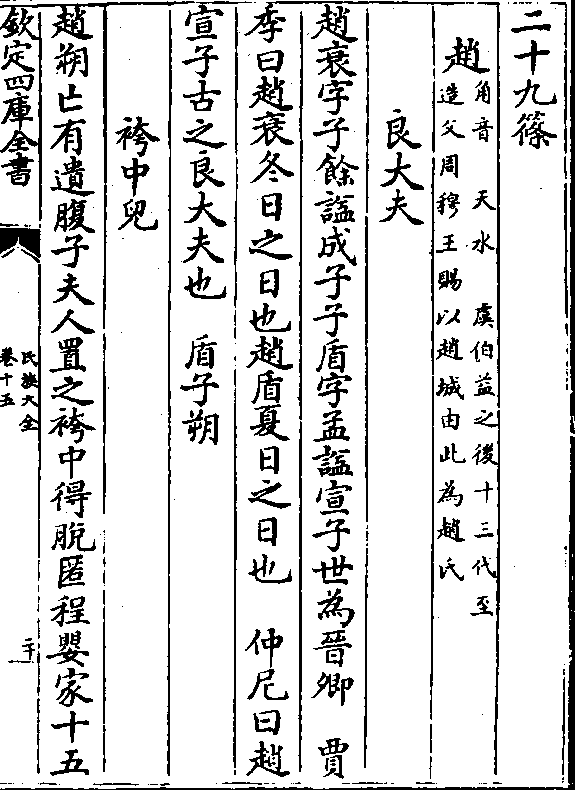 二十九篠
趙角音　天水　虞伯益之後十三代至
造父周穆王賜以趙城由此為趙氏
良大夫
趙衰字子餘諡成子子盾字孟諡宣子世為晉卿　賈
季曰趙衰冬日之日也趙盾夏日之日也　仲尼曰趙
宣子古之良大夫也　盾子朔
袴中兒
趙朔亡有遺腹子夫人置之袴中得脫匿程嬰家十五
欽定四庫全書
氏族大全
卷十五
二十